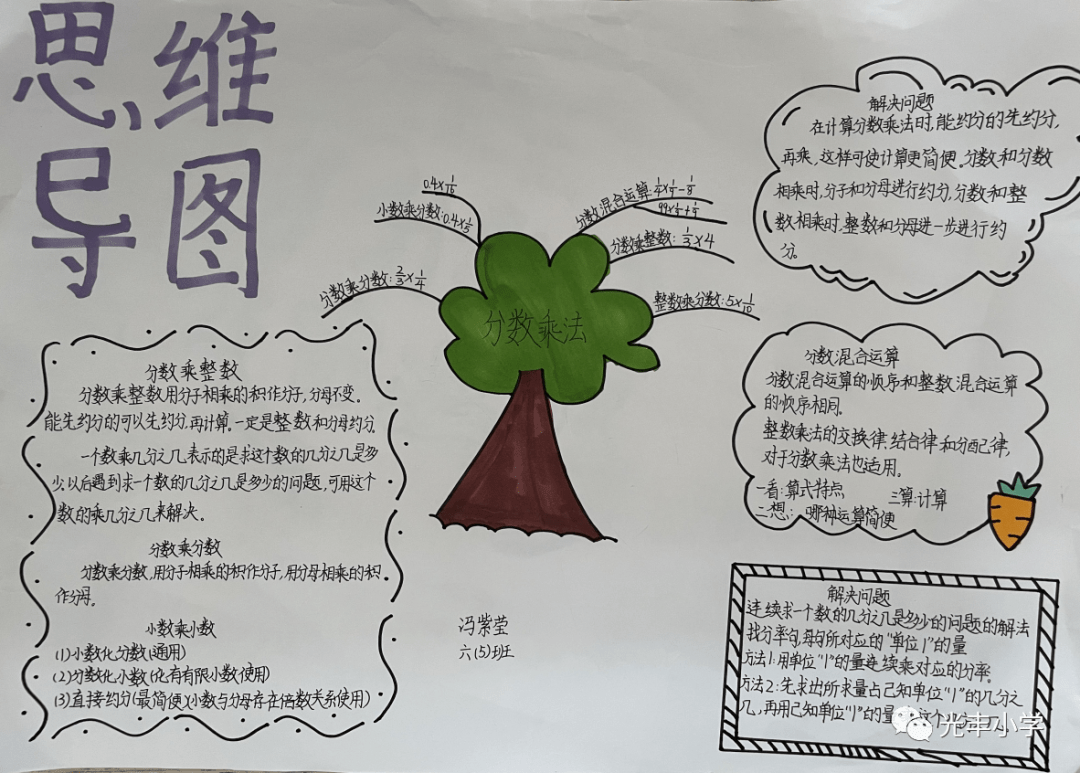 思维
导图
0.4×
小数乘分数:0.4×
分数乘分数:2/3×1/4
分数混合运算:
分数乘整数:1/3×4
整数乘分数:5×1/10
分数乘法
分数乘整数
分数乘整数用分子相乘的积作分子,分母不变。
能先约分的可以先约分,再计算。一定是整数和分母约分
一个数乘几分之几表示的是求这个数的几分之几是多
少,以后遇到求一个数的几分之几是多少的问题,可用这个
数的乘几分之几来解决。
分数乘分数
分数乘分数,用分子相乘的积作分子,用分母相乘的积
作分母。
小数乘小数
(1)小数化分数(通用)
(2)分数化小数(化有有限小数使用)
(3)直接约分(最简便)(小数与分母存在倍数关系使用)
冯紫莹
六(5)班
解决问题
在计算分数乘法时,能约分的先约分,
再乘,这样可使计算更简便。分数和分数
相乘时,分子和分母进行约分,分数和整
数相乘时,整数和分母进一步进行约
分。
分数混合运算
分数混合运算的顺序和整数混合运算
的顺序相同。
整数乘法的交换律、结合律和分配律,
对于分数乘法也适用。
一看:算式特点 三算:计算
二想:哪种运算简便
解决问题
连续求一个数的几分之几是多少的问题的解法
找分率句,
所对应的“单位1”的量
方法1:用单位“1”的量连续乘对应的分率。
方法2:先求出所求量占已知单位“1”的几分之
几,再用已知单位“1”的量
光丰小学